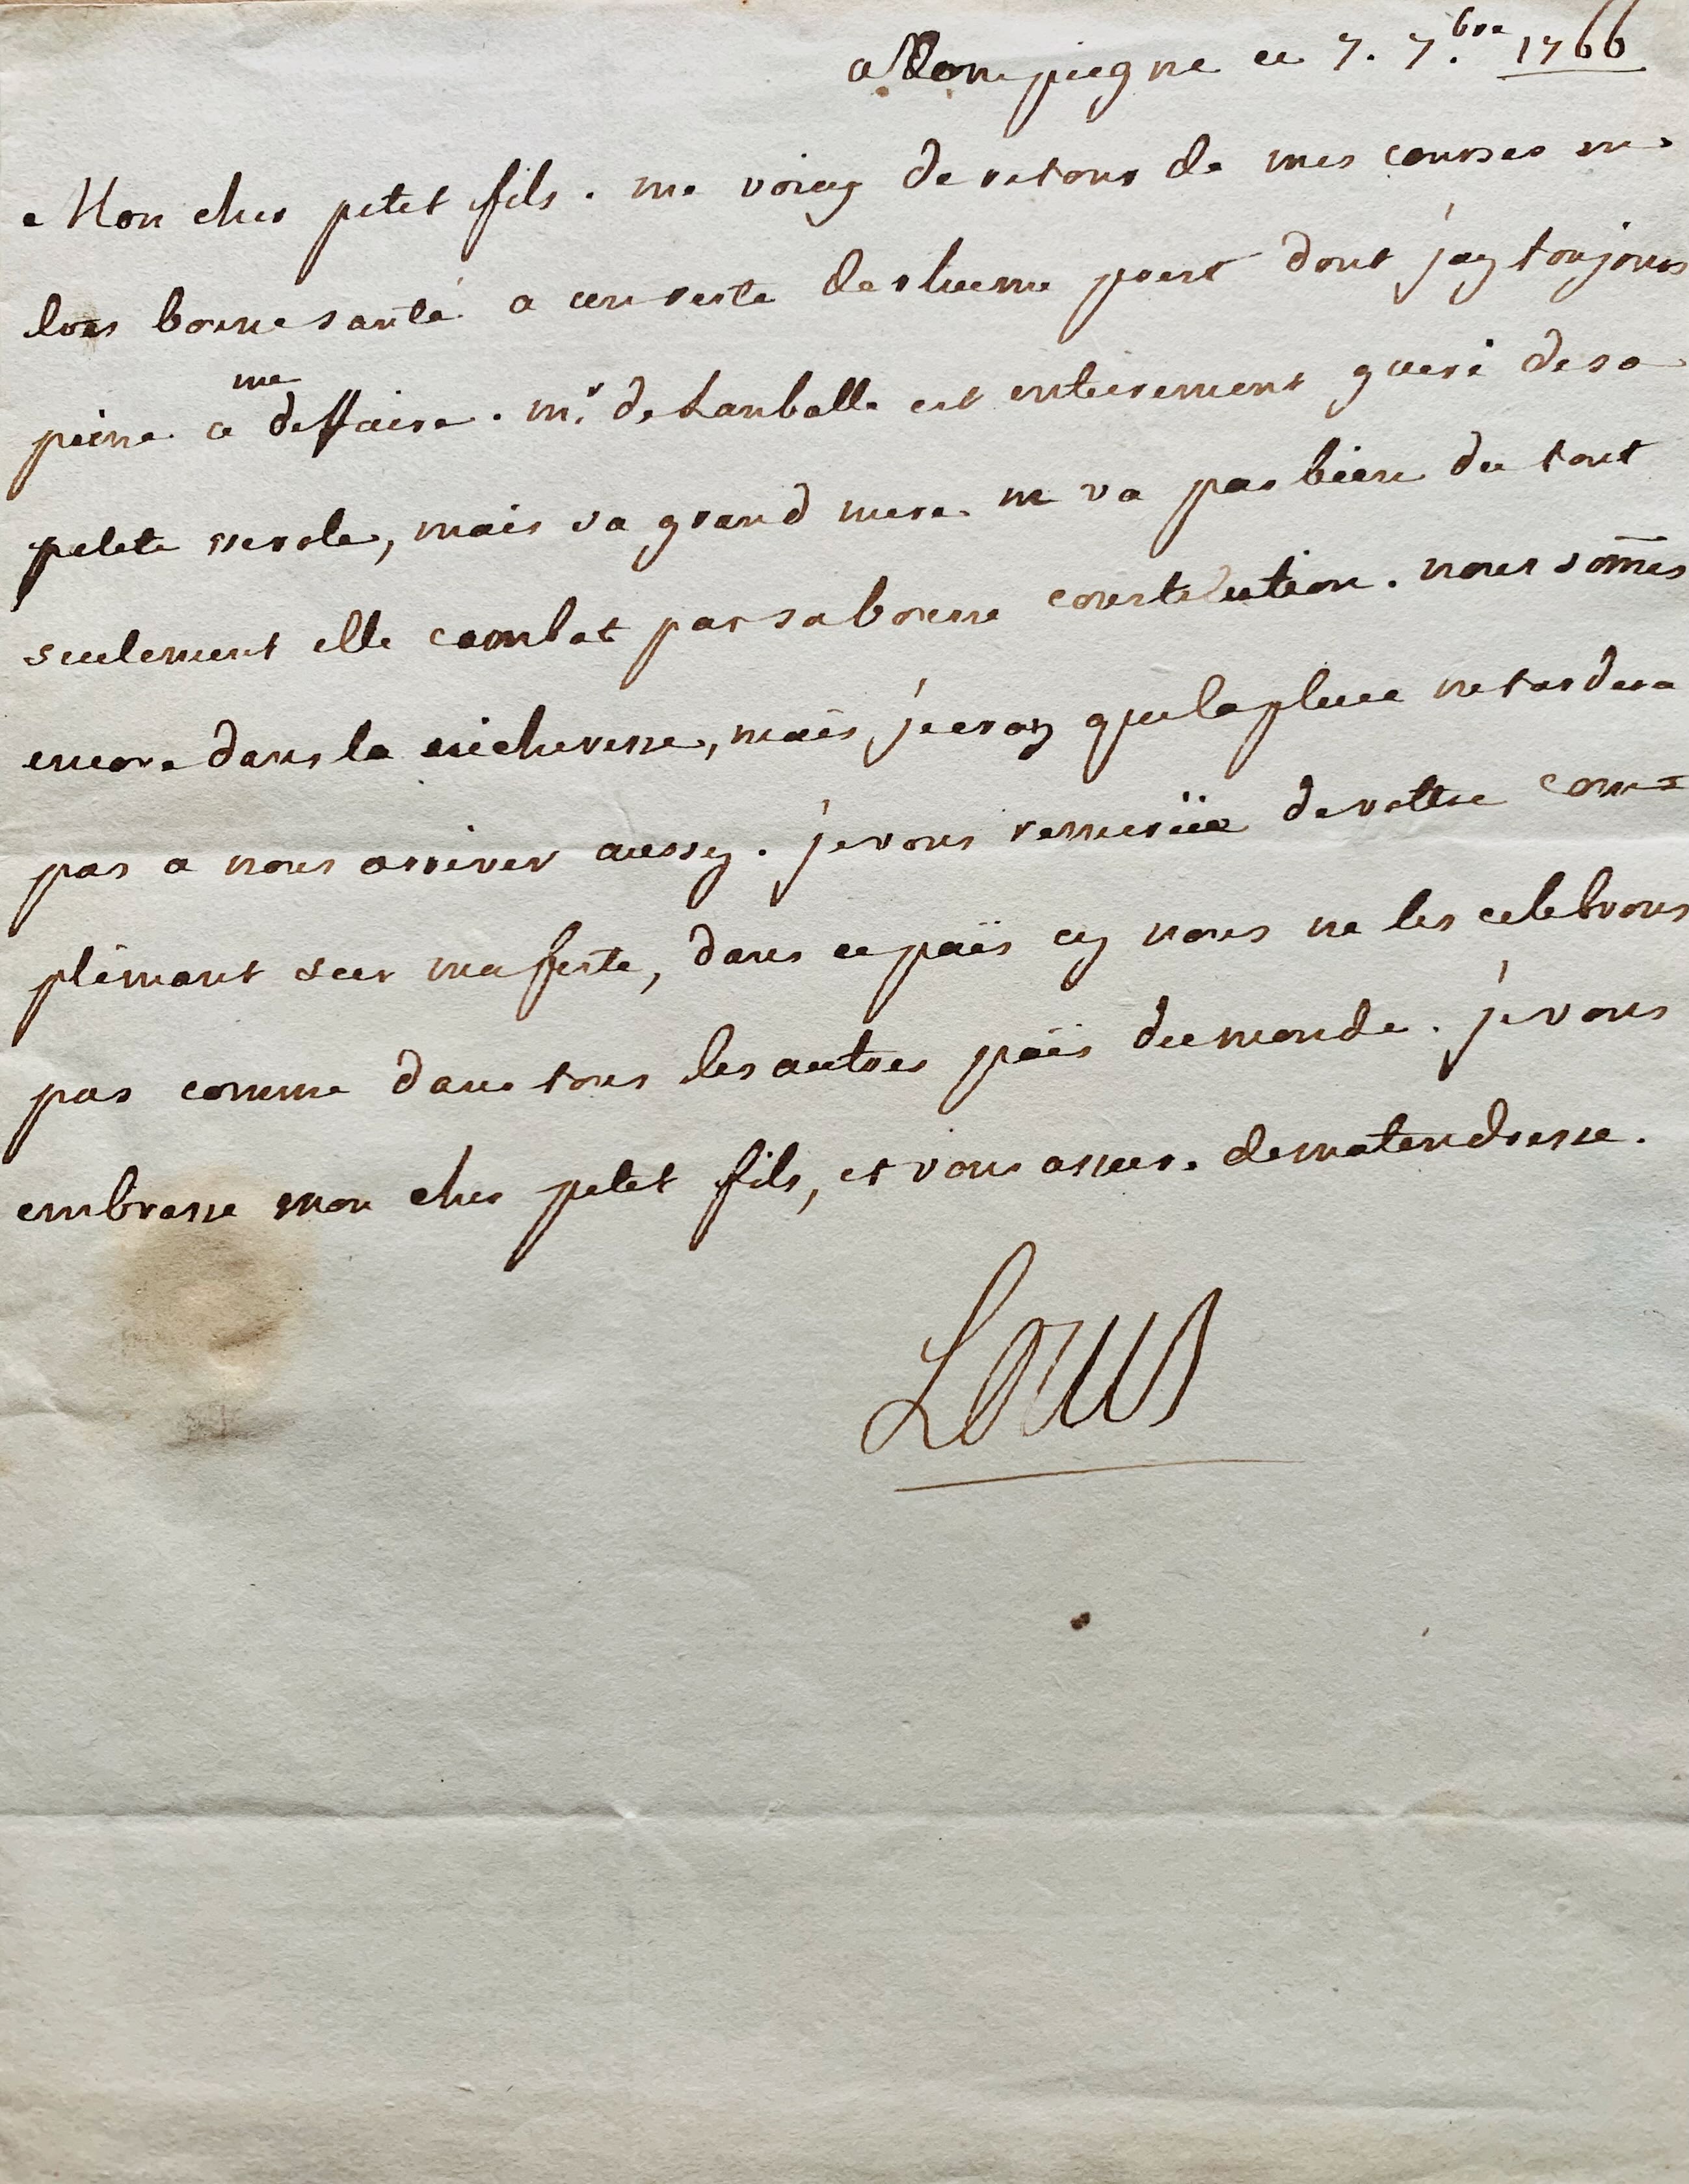 a Compiegne ce 7. 7.bre 1766
Mon cher petit fils. me voicy de retour de mes courses en
bonne santé a un reste de rhume prest dont j'ay toujours
peine a me deffaire. mr. de Lanballe est entierement gueri de sa
petite verole, mais sa grand mere ne va pas bien du tout
seulement elle combat par sa bonne constitution. nous som̄es
encore dans la secheresse, mais je croy que la pluie ne tardera
pas a nous arriver aussy. je vous remerciie de vottre com=
plimant sur ma feste, dans ce païs cy nous ne les celebrons
pas comme dans tous les autres païs du monde. je vous
embrasse mon cher petit fils, et vous assure de ma tendresse.
Louis